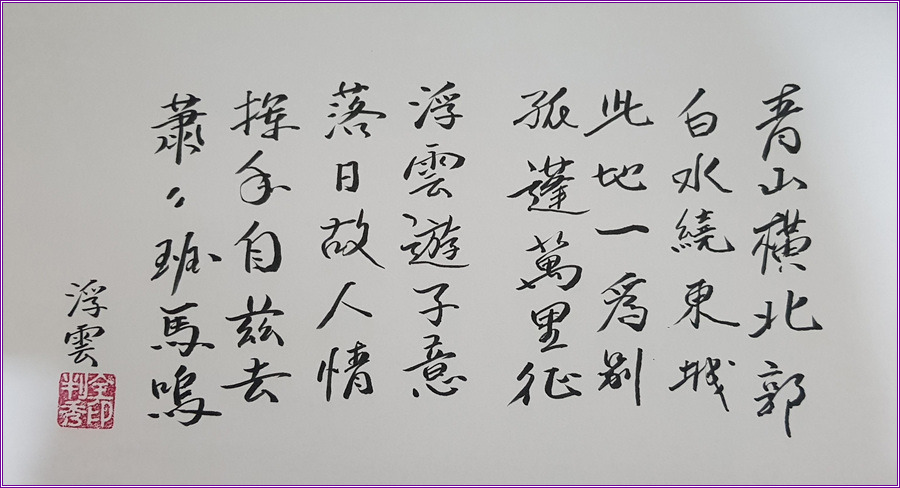 青山橫北郭
白水繞東城
此地一爲別
孤蓬萬里征
浮雲遊子意
落日故人情
揮手自茲去
蕭々班馬鳴
浮雲
全判秀印